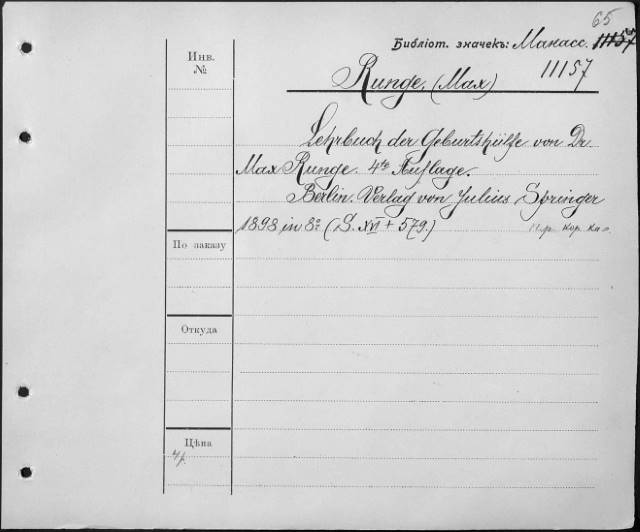 65
Библіот. значекъ: Манасс. 11157
11157
Инв.
№
Runge, (Max)
Lehrbuch der Geburtshülfe von Dr.
Max Runge. 4te Auflage.
Berlin. Verlag von Julius Springer
1898 in 8° (S. XVI + 579.)
По заказу
Откуда
Цѣна